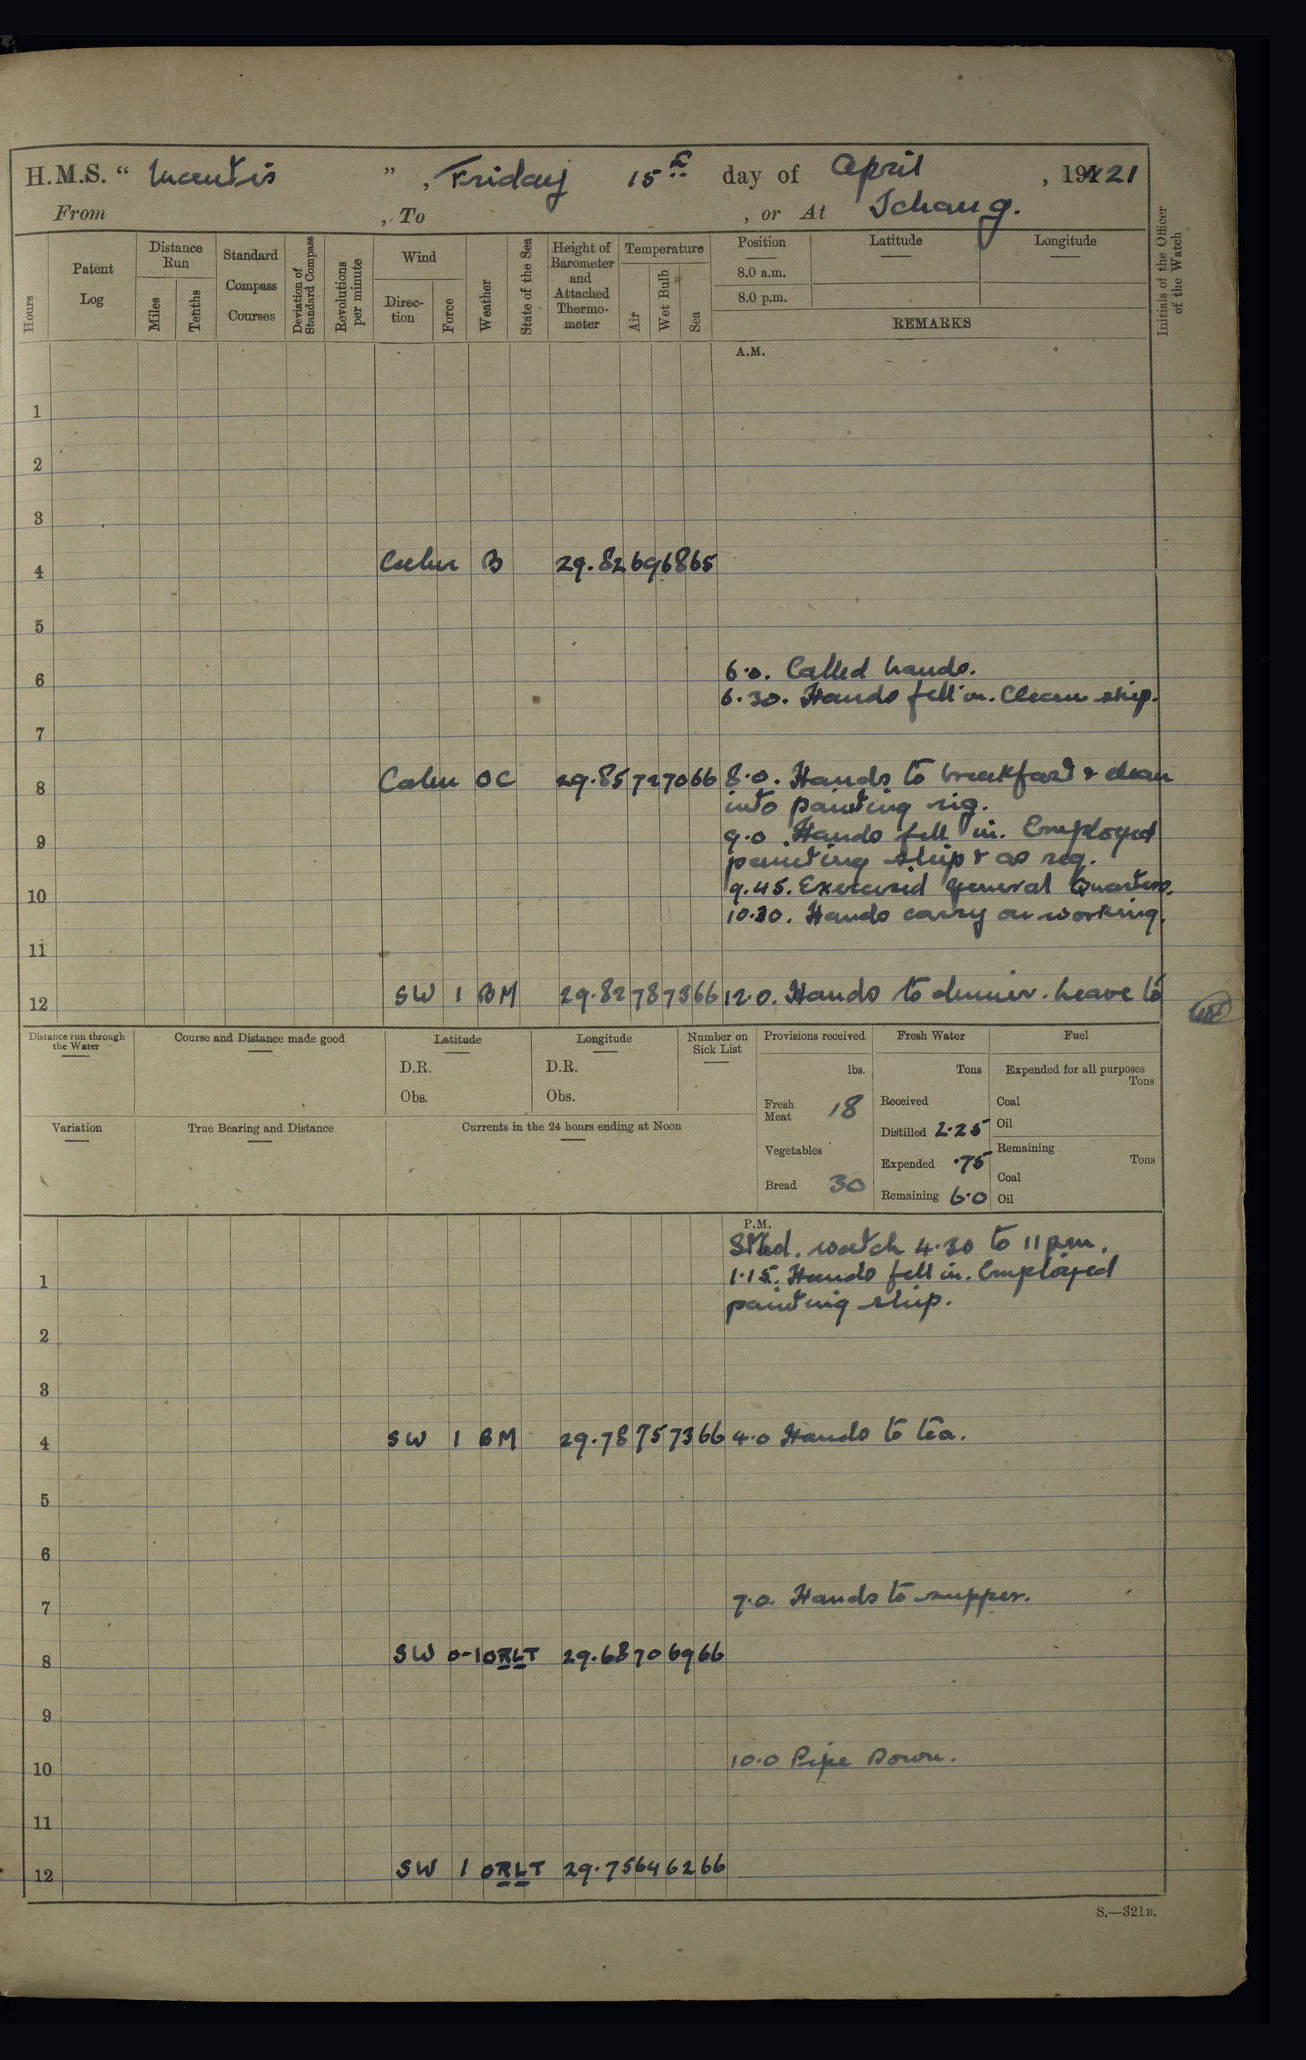 H.M.S. “ Mantis ” , Friday 15th day of April , 1921
From , To , or At Ichang.
Hours
Patent Log
Distance Run
Miles
Tenths
Standard Compass Courses
Deviation of Standard Compass
Revolutions per minute
Wind
Direc-tion
Force
Weather
State of the Sea
Height of Barometer and Attached Thermo-meter
Temperature
Air
Wet Bulb
Sea
Position
8.0 a.m.
8.0 p.m.
Latitude
Longitude
REMARKS
Initials of the Officer of the Watch
A.M.
1
2
3
4 Calm B 29.82 69 68 65
5
6 6.0. Called hands.
6.30. Hands fell in. Clean ship.
7
8 Calm OC 29.85 72 70 66 8.0. Hands to breakfast & clean
into painting rig.
9 9.0. Hands fell in. Employed
painting ship & as req.
9.45. Exercised general Quarters.
10 10.30. Hands carry on working.
11
12 SW 1 BM 29.82 78 73 66 12.0. Hands to dinner. Leave to
Distance run through the Water
Course and Distance made good
Latitude
D.R.
Obs.
Longitude
D.R.
Obs.
Number on Sick List
Provisions received
lbs.
Fresh Meat 18
Vegetables
Bread 30
Fresh Water
Tons
Received
Distilled 2.25
Expended .75
Remaining 6.0
Fuel
Expended for all purposes
Tons
Coal
Oil
Remaining
Tons
Coal
Oil
Variation
True Bearing and Distance
Currents in the 24 hours ending at Noon
P.M.
watch 4.30 to 11 p.m.
1 1.15. Hands fell in. Employed
painting ship.
2
3
4 SW 1 BM 29.78 75 73 66 4.0 Hands to tea.
5
6
7 7.0. Hands to supper.
8 SW 0-1 ORLT 29.68 70 69 66
9
10 10.0 Pipe Down.
11
12 SW 1 ORLT 29.75 64 62 66
S.—321B.